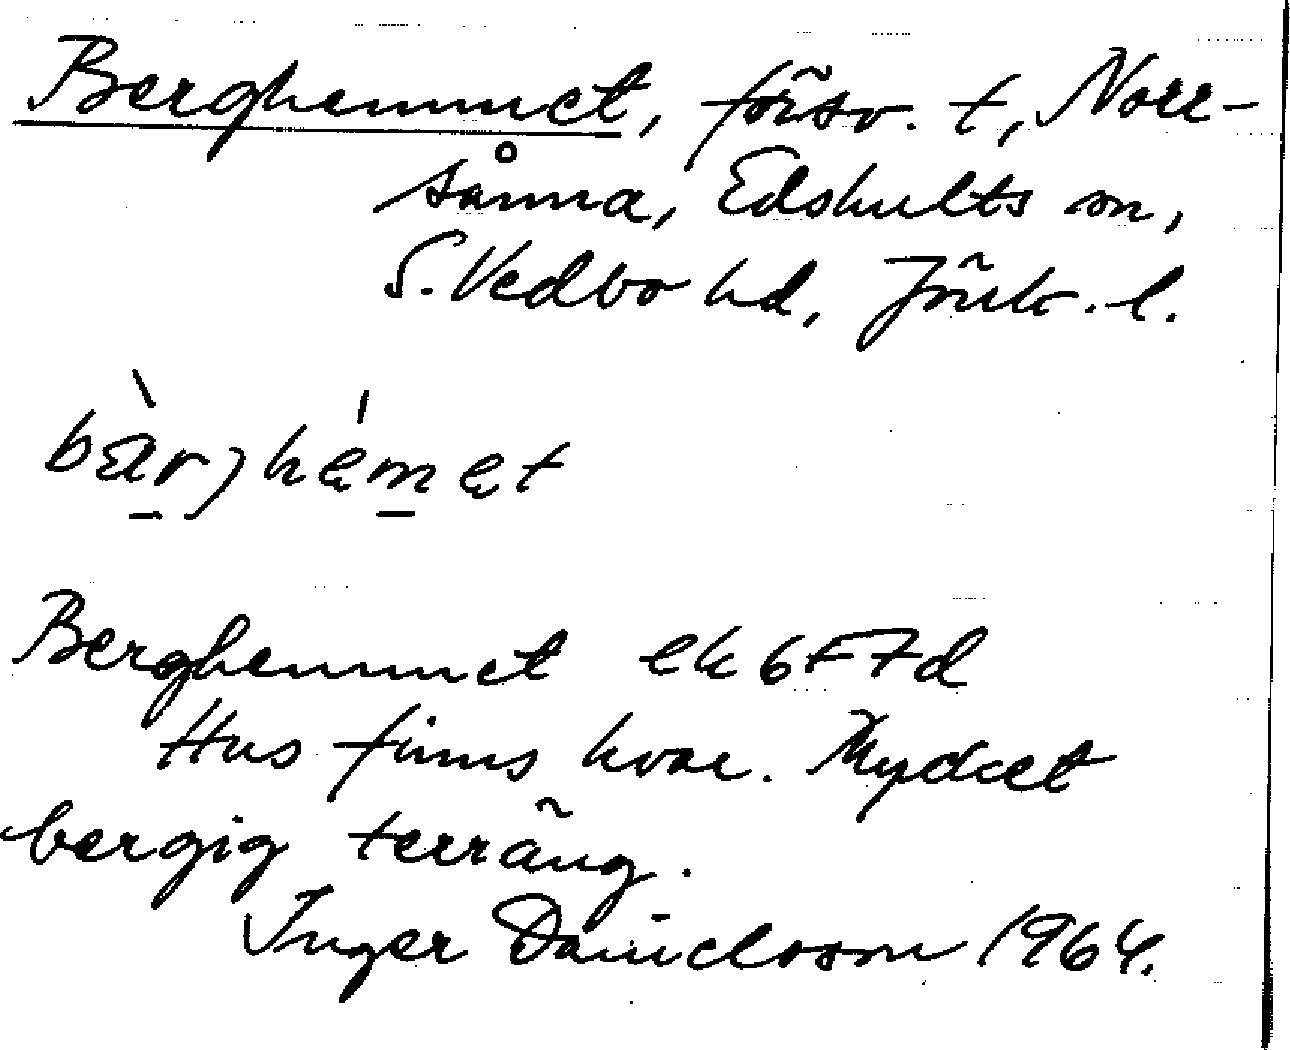 Berghemmet, försv. t, Norr-
sånna, Edshults sn,
S. Vedbo hd, Jönk. l.
bä̀rjhémet
Berghemmet ek 6F7d
Hus finns kvar. Mycket
bergig terräng.
Inger Danielsson 1964.